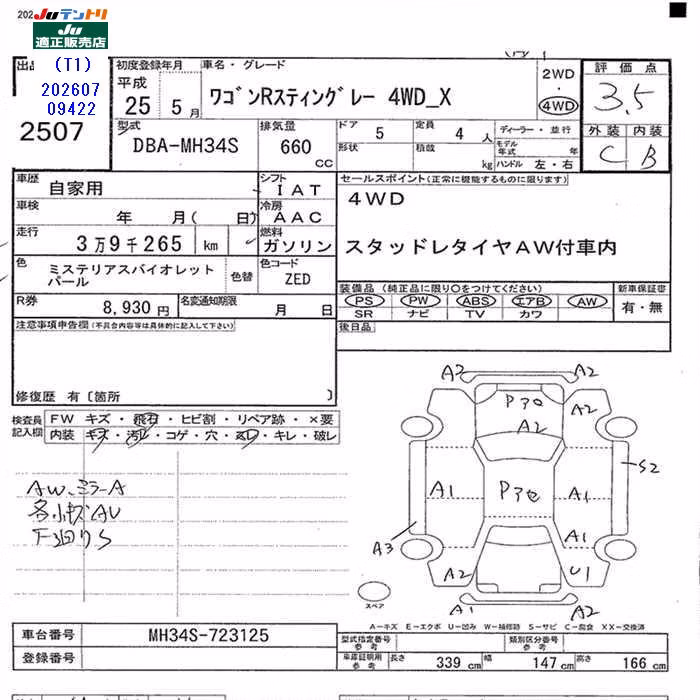 202
JUテントリ
JU
適正販売店
(T1)
202607
09422
2507
初度登録年月
平成
25 5月
車名・グレード
ワゴンRスティングレー 4WD_X
2WD
・
4WD
評価点
3.5
外装 内装
C B
型式
DBA-MH34S
排気量
660
CC
ドア 5
形状
定員 4 人
積載 kg
ディーラー・並行
モデル年式 年
ハンドル 左・右
車歴 自家用
シフト IAT
車検 年 月( 日)
冷房 AAC
走行 3万9千265 km
燃料 ガソリン
色 ミステリアスバイオレット
パール
色替
色コード ZED
R券 8,930円
名変通知期限 月 日
セールスポイント(正常に機能するものに限ります)
4WD
スタッドレタイヤAW付車内
装備品(純正品に限り〇をつけてください)
新車保証書
PS PW ABS エアB AW
有・無
SR ナビ TV カワ
後日品
注意事項申告欄(不具合内容等は具体的に記入して下さい)
修復歴 有〔箇所 〕
検査員
記入欄
FW キズ・飛石・ヒビ割・リペア跡・×要
内装 キズ・汚レ・コゲ・穴・ヌレ・キレ・破レ
AW、ミラーA
各小キズAU
下廻りS
A2 A2
A2 Pアロ A2
A2
S2
A1 Pアロ A1
A3 A1
A2 U1
A1 A2
スペア
A-キズ E-エクボ U-凹み W-補修跡 S-サビ C-腐食 XX-交換済
車台番号 MH34S-723125
登録番号
型式指定番号
参考
類別区分番号
参考
車庫証明用
参考
長さ 339 cm 幅 147 cm 高さ 166 cm